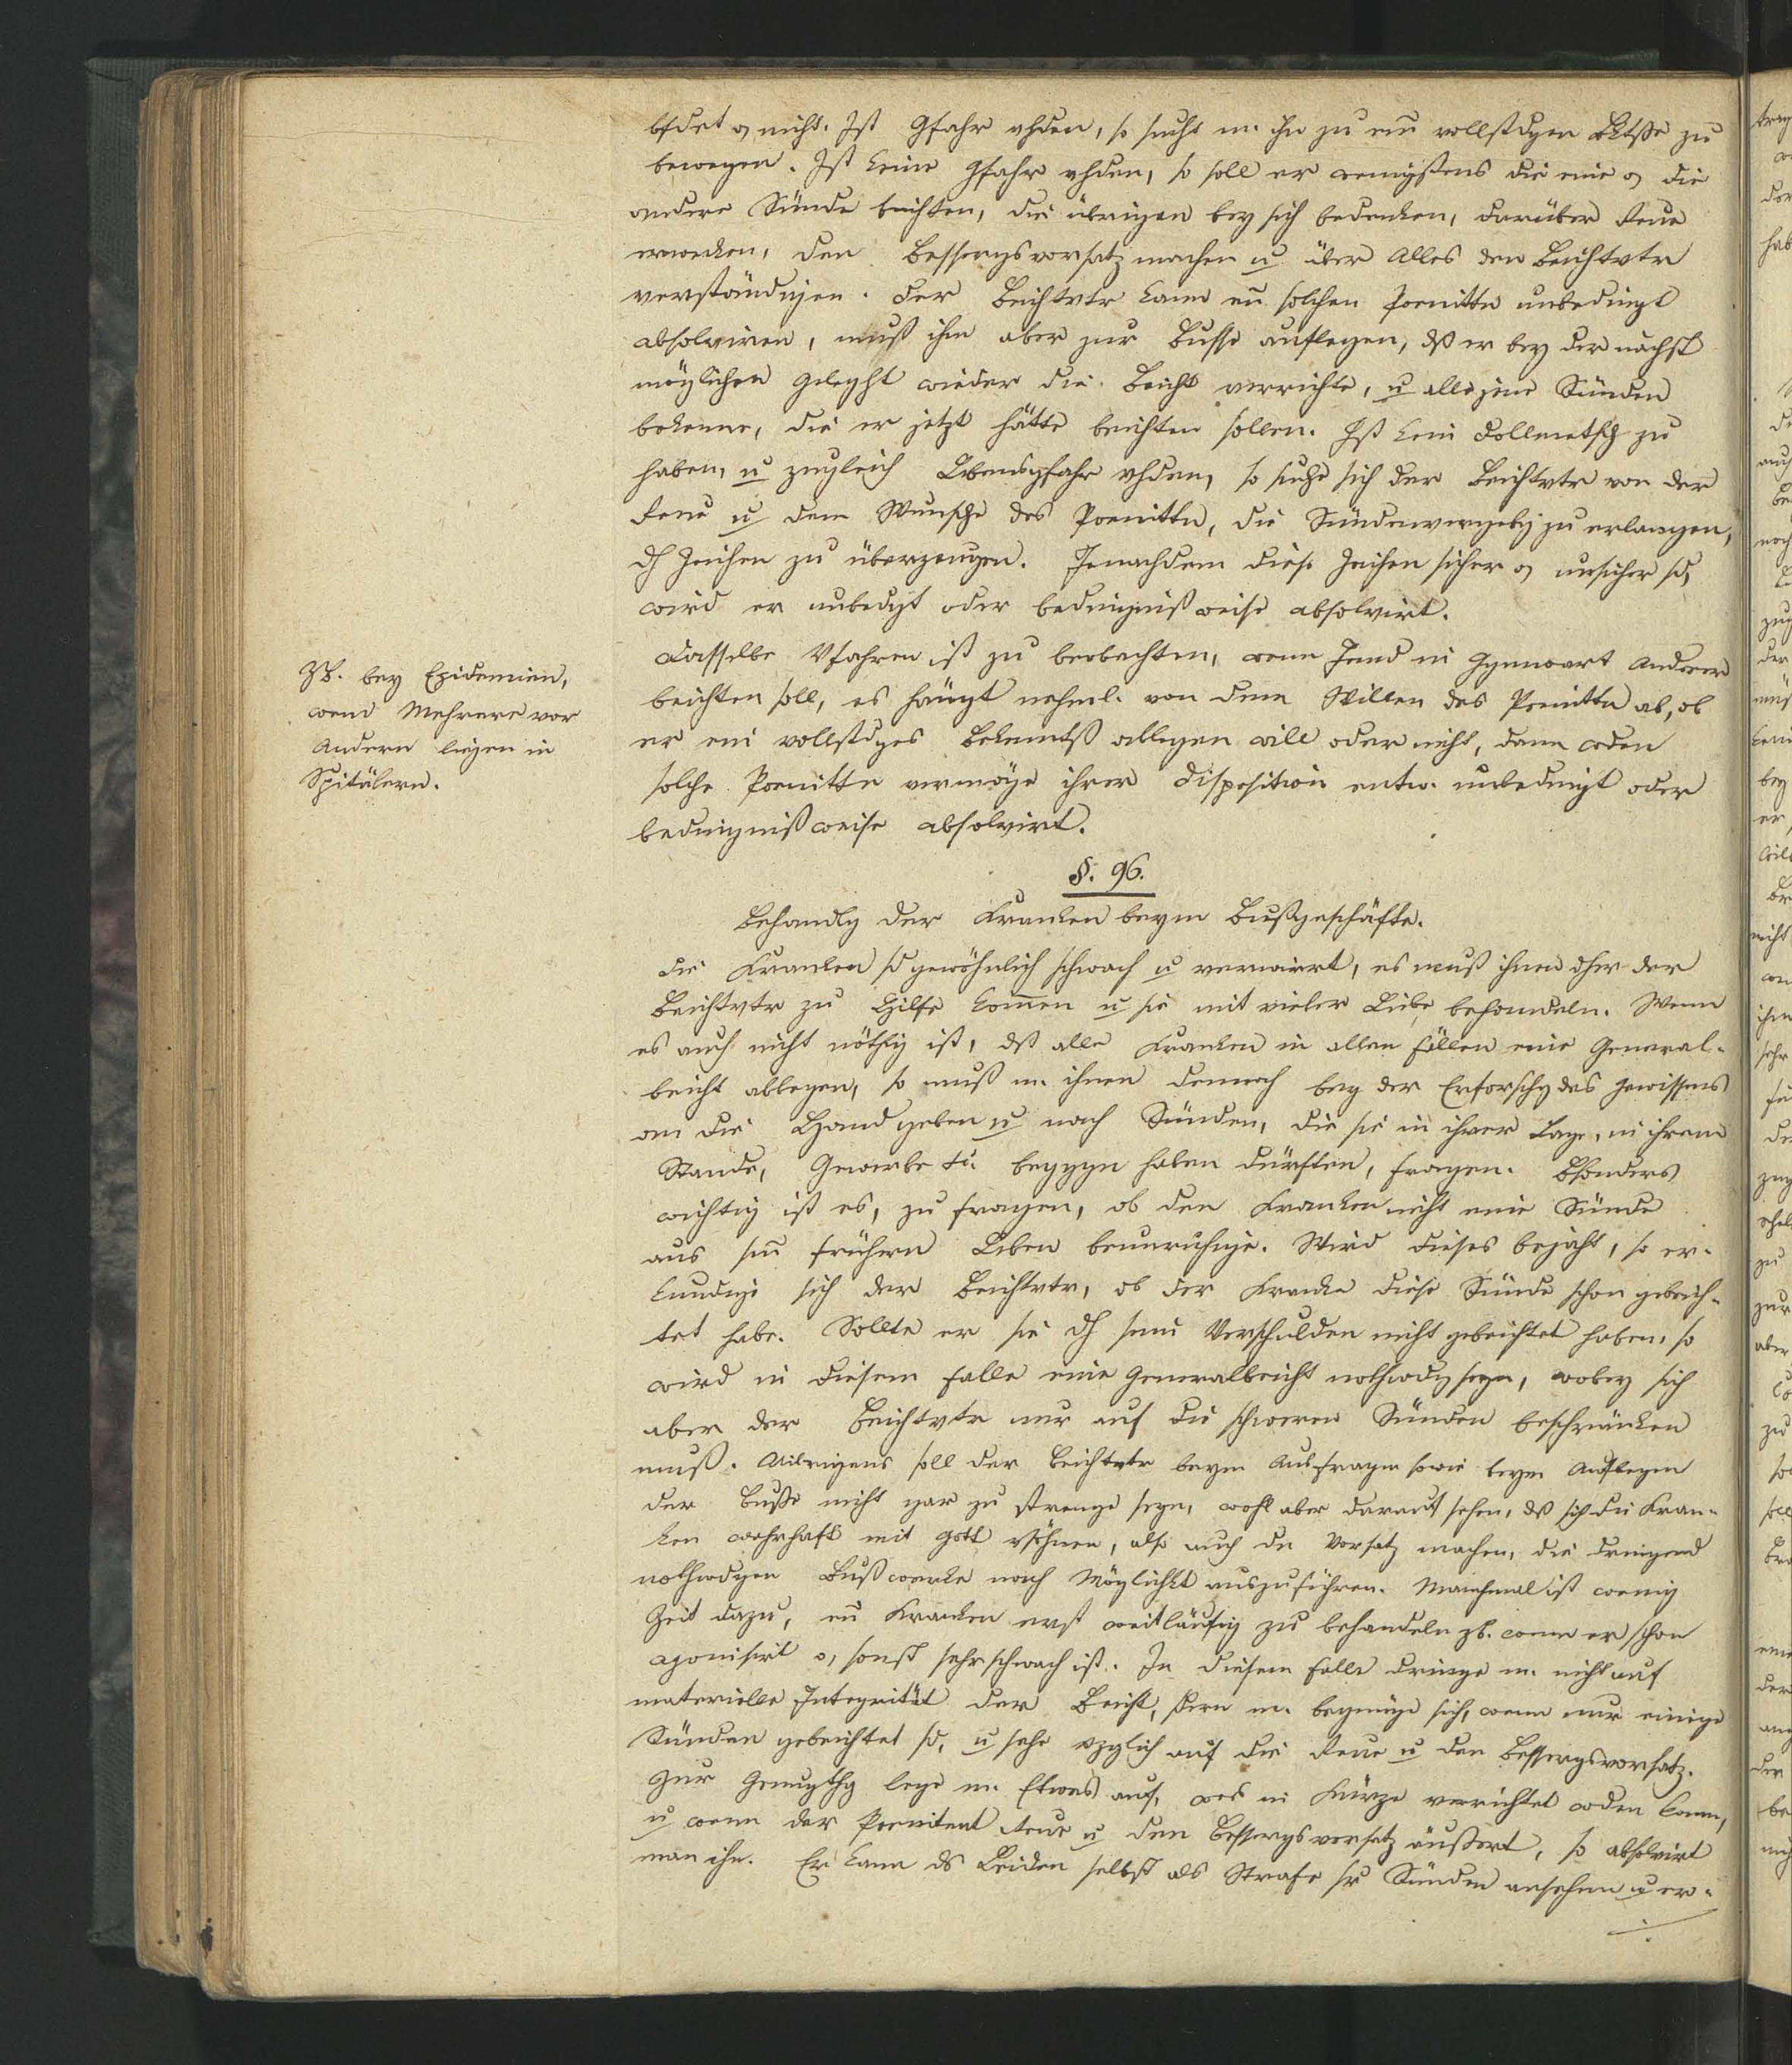 bfdet o, nicht. Ist Gfahr vhden, so sucht m. ihn zu ein vollstdgen Bktße zu
bewegen. Ist keine Gfahr vhden, so soll er wenigstens die eine o, die
andere Sünde beichten, die übrigen bey sich bedenken, darüber Reue
erwecken, den Bessergsvorsatz machen u über Alles den Beichtvtr
verständigen. Der Beichtvtr kann ein solchen Poenittn unbedingt
absolviren, muß ihm aber zur Busse auflegen, dß er bey der nächst
möglichen Geleght wieder die Beicht verrichte, u alle jene Sünden
bekenne, die er jetzt hätte beichten sollen. Ist kein Dollmetsch zu
haben, u zugleich Lbensgfahr vhden, so suche sich der Beichtvtr von der
Reue u dem Wunsche des Poenittn, die Sündenvergebg zu erlangen,
dh Zeichen zu überzeugen. Jenachdem diese Zeichen sicher o, unsicher sd,
wird er unbedgt oder bedingnißweise absolvirt.
Dasselbe Vfahren ist zu beobachten, wenn Jemd in Ggenwart Anderer
beichten soll, es hängt nehml. von dem Willen des Poenittn ab, ob
er ein vollstdges Bekenntß ablegen will oder nicht, dann wden
solche Poenittn vermöge ihrer Disposition entw. unbedingt oder
bedingnißweise absolvirt.
ZB. bey Epidemien,
wenn Mehrere vor
Andern liegen in
Spitälern.
§. 96.
Behandlg der Kranken beym Bußgeschäfte.
Die Kranken sd gewöhnlich schwach u verwirrt, es muß ihnen dher der
Beichtvtr zu Hilfe kommen u sie mit vieler Liebe behandeln. Wenn
es auch nicht nöthig ist, dß alle Kranken in allen Fällen eine General-
beicht ablegen, so muß m. ihnen dennoch bey der Erforschg des Gewissens
an die Hand geben u nach Sünden, die sie in ihrer Lage, in ihrem
Stande, Gewerbe etc. beggen haben dürften, fragen. Bsonders
wichtig ist es, zu fragen, ob den Kranken nicht eine Sünde
aus sein frühern Leben beunruhige. Wird dieses bejaht, so er-
kundige sich der Beichtvtr, ob der Kranke diese Sünde schon gebeich-
tet habe. Sollte er sie dh sein Verschulden nicht gebeichtet haben, so
wird in diesem Falle eine Generalbeicht nothwdg seyn, wobey sich
aber der Beichtvtr nur auf die schweren Sünden beschränken
muß. Uibrigens soll der Beichtvtr beym Ausfragen sowie beym Auflegen
der Buße nicht gar zu strenge seyn, wohl aber darauf sehen, dß sich die Kran-
ken wahrhaft mit Gott vsöhnen, also auch den Vorsatz machen, die dringend
nothwdgen Bußwerke nach Möglichkt auszuführen. Manchmal ist wenig
Zeit dazu, ein Kranken erst weitläufig zu behandeln zb. wenn er schon
agonisirt o, sonst sehr schwach ist. In diesem Falle dringe m. nicht auf
materielle Integrität der Beicht, sdern m. begnüge sich, wenn nur einige
Sünden gebeichtet sd, u sehe vzglich auf die Reue u den Bessergsvorsatz.
Zur Genugthg lege m. Etwas auf, was in Kürze verrichtet wden kann,
u wenn der Poenitent Reue u den Bessergsvorsatz äußert, so absolvirt
man ihn. Er kann ds Leiden selbst als Strafe sr Sünden ansehen u er-